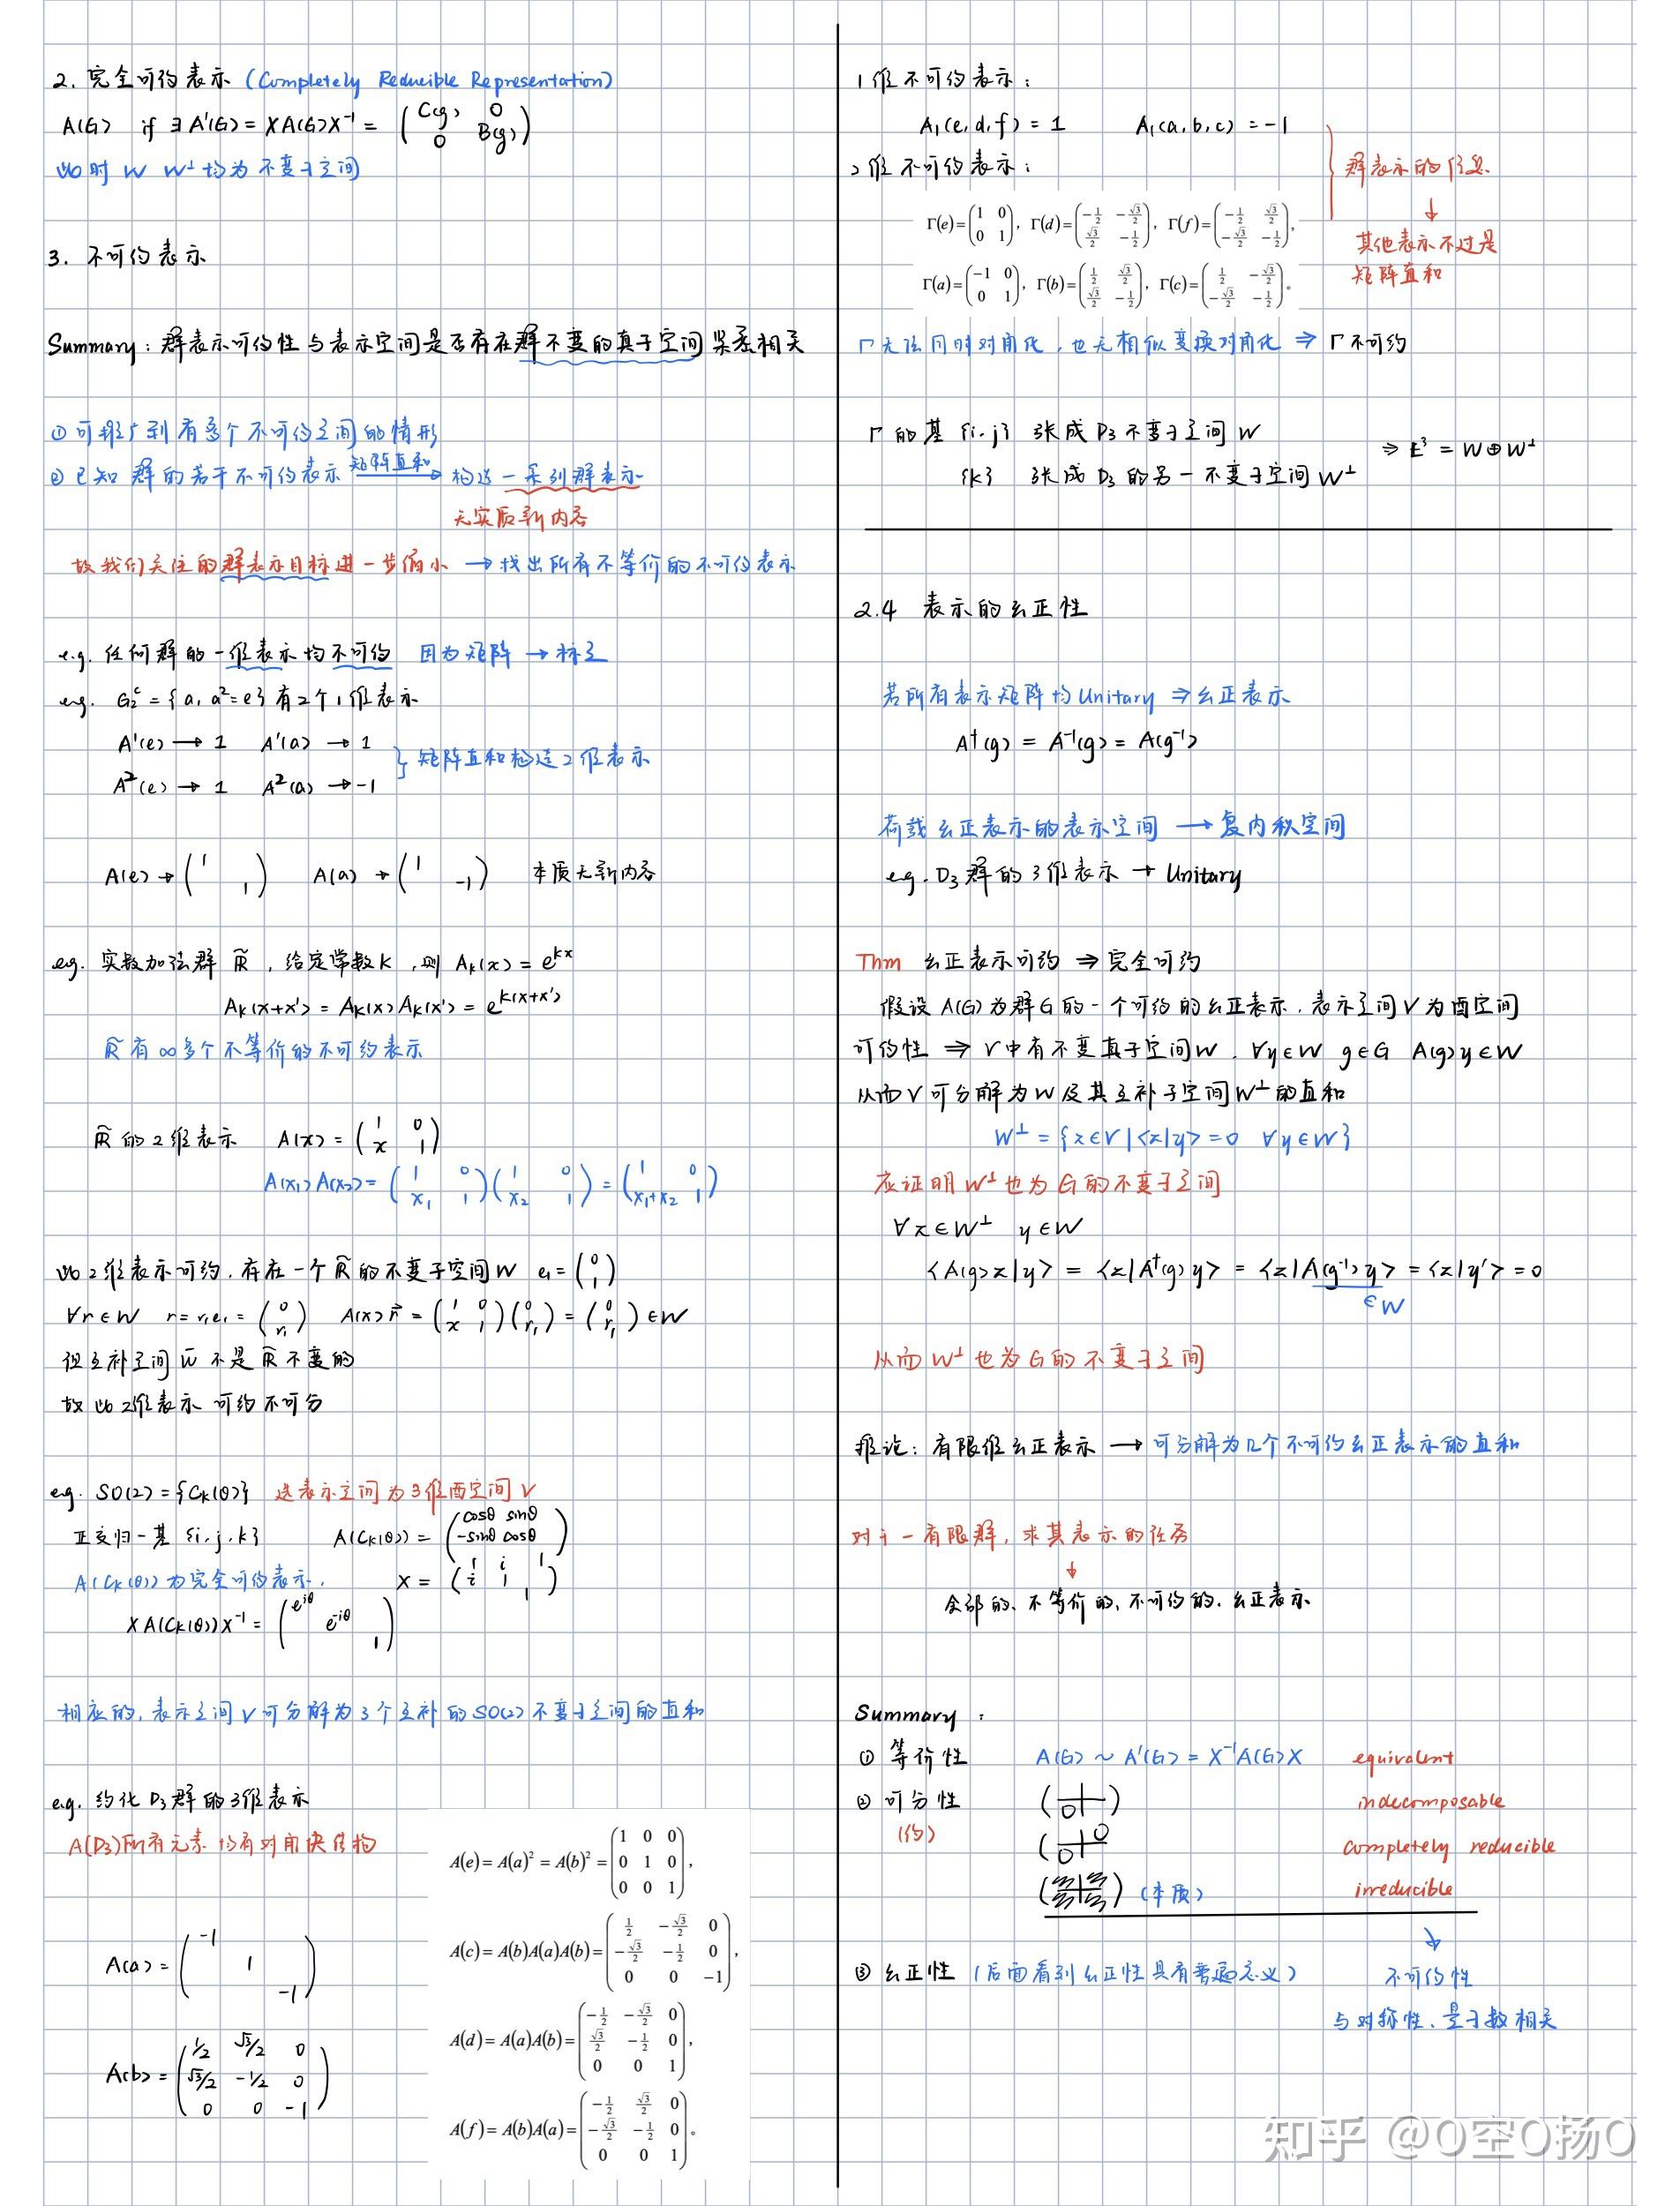 2. 完全可约表示 (Completely Reducible Representation)
A(G) if ∃ A'(G) = X A(G) X⁻¹ = ( C(g) 0 ; 0 B(g) )
此时 W W⊥ 均为不变子空间
3. 不可约表示
Summary: 群表示可约性与表示空间是否存在群不变的真子空间紧密相关
① 可推广到有多个不可约空间的情形
② 已知群的若干不可约表示 矩阵直和→ 构造一系列群表示
无实质新内容
故我们关注的群表示目标进一步缩小 → 找出所有不等价的不可约表示
e.g. 任何群的一维表示均不可约 因为矩阵 → 标量
e.g. G₂ᶜ = {a, a²=e} 有2个1维表示
A¹(e) → 1 A¹(a) → 1
A²(e) → 1 A²(a) → -1
} 矩阵直和构造2维表示
A(e) → ( 1 ; 1 ) A(a) → ( 1 ; -1 ) 本质无新内容
e.g. 实数加法群 R̃, 给定常数K, 则 A_K(x) = e^{kx}
A_K(x+x') = A_K(x) A_K(x') = e^{k(x+x')}
R̃ 有∞多个不等价的不可约表示
R̃ 的2维表示 A(x) = ( 1 0 ; x 1 )
A(x₁) A(x₂) = ( 1 0 ; x₁ 1 ) ( 1 0 ; x₂ 1 ) = ( 1 0 ; x₁+x₂ 1 )
此2维表示可约, 存在一个R̃的不变子空间W e₁ = ( 0 ; 1 )
∀r∈W r = r₁e₁ = ( 0 ; r₁ ) A(x) r⃗ = ( 1 0 ; x 1 ) ( 0 ; r₁ ) = ( 0 ; r₁ ) ∈ W
但互补空间 W̄ 不是 R̃ 不变的
故此2维表示 可约不可分
e.g. SO(2) = {C_K(θ)} 选表示空间为3维酉空间 V
正交归一基 {i, j, k} A(C_K(θ)) = ( cosθ sinθ ; -sinθ cosθ ; 1 )
A(C_K(θ)) 为完全可约表示. X = ( 1 i ; i 1 ; 1 )
X A(C_K(θ)) X⁻¹ = ( e^{iθ} ; e^{-iθ} ; 1 )
相应的, 表示空间V可分解为3个互补的SO(2)不变子空间的直和
e.g. 约化D₃群的3维表示
A(D₃)所有元素均有对角块结构
A(a) = ( -1 ; 1 ; -1 )
A(b) = ( 1/2 √3/2 0 ; √3/2 -1/2 0 ; 0 0 -1 )
A(e) = A(a)² = A(b)² = ( 1 0 0 ; 0 1 0 ; 0 0 1 ),
A(c) = A(b)A(a)A(b) = ( 1/2 -√3/2 0 ; -√3/2 -1/2 0 ; 0 0 -1 ),
A(d) = A(a)A(b) = ( -1/2 -√3/2 0 ; √3/2 -1/2 0 ; 0 0 1 ),
A(f) = A(b)A(a) = ( -1/2 √3/2 0 ; -√3/2 -1/2 0 ; 0 0 1 )。
1维不可约表示:
A₁(e, d, f) = 1 A₁(a, b, c) = -1
2维不可约表示:
Γ(e) = ( 1 0 ; 0 1 ), Γ(d) = ( -1/2 -√3/2 ; √3/2 -1/2 ), Γ(f) = ( -1/2 √3/2 ; -√3/2 -1/2 ),
Γ(a) = ( -1 0 ; 0 1 ), Γ(b) = ( 1/2 √3/2 ; √3/2 -1/2 ), Γ(c) = ( 1/2 -√3/2 ; -√3/2 -1/2 )。
群表示的信息
↓
其他表示不过是
矩阵直和
Γ无法同时对角化, 也无相似变换对角化 ⇒ Γ不可约
Γ的基 {i, j} 张成 D₃ 不变子空间 W
{k} 张成 D₃ 的另一不变子空间 W⊥
⇒ E³ = W⊕W⊥
2.4 表示的幺正性
若所有表示矩阵均Unitary ⇒ 幺正表示
A†(g) = A⁻¹(g) = A(g⁻¹)
荷载幺正表示的表示空间 → 复内积空间
e.g. D₃群的3维表示 → Unitary
Thm 幺正表示可约 ⇒ 完全可约
假设 A(G) 为群G的一个可约的幺正表示, 表示空间V为酉空间
可约性 ⇒ V中有不变真子空间W, ∀y∈W g∈G A(g)y∈W
从而V可分解为W及其互补子空间W⊥的直和
W⊥ = {x∈V | <x|y> = 0 ∀y∈W}
应证明W⊥也为G的不变子空间
∀x∈W⊥ y∈W
<A(g)x|y> = <x|A†(g)y> = <x|A(g⁻¹)y> = <x|y'> = 0
∈W
从而W⊥也为G的不变子空间
推论: 有限维幺正表示 → 可分解为几个不可约幺正表示的直和
对于一有限群, 求其表示的任务
↓
全部的、不等价的、不可约的、幺正表示
Summary:
① 等价性 A(G) ~ A'(G) = X⁻¹A(G)X equivalent
② 可分性 ( 0 ) indecomposable
(约) ( 0 0 ) completely reducible
(本质) irreducible
↓
不可约性
与对称性、量子数相关
③ 幺正性 (后面看到幺正性具有普遍意义)
知乎 @O空O扬O